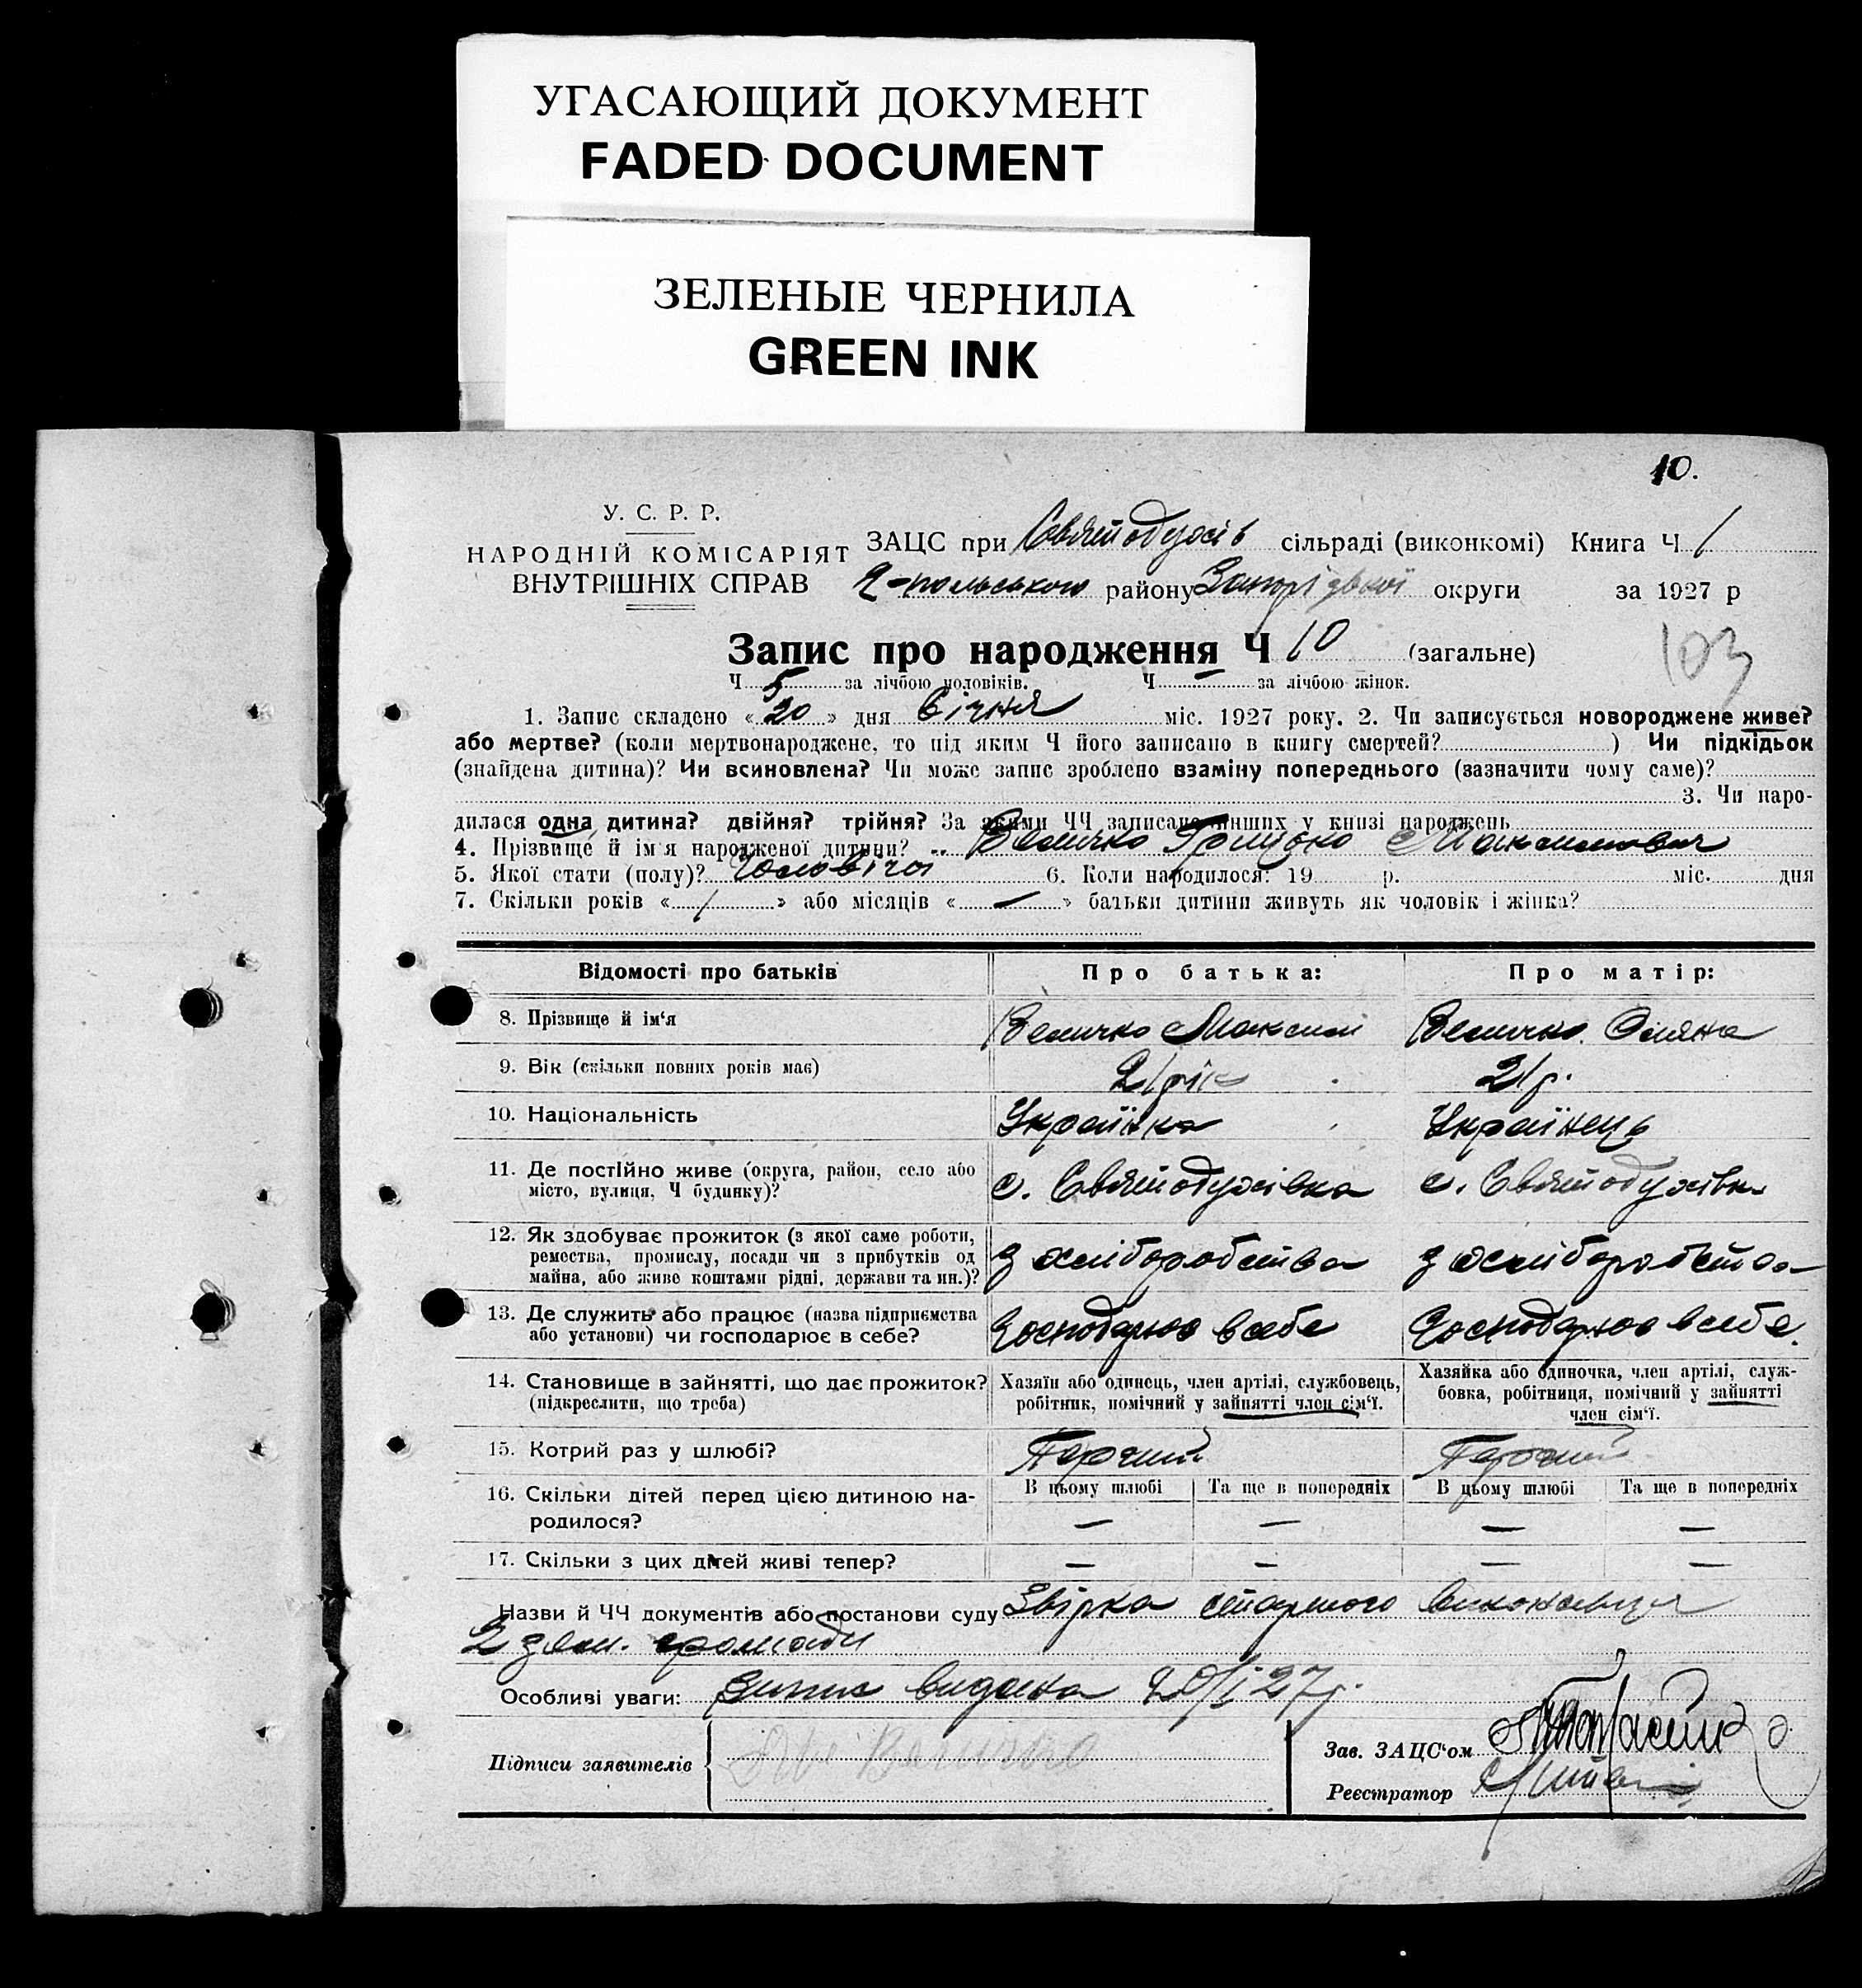 УГАСАЮЩИЙ ДОКУМЕНТ
FADED DOCUMENT
ЗЕЛЕНЫЕ ЧЕРНИЛА
GREEN INK
10.
У. С. Р. Р.
НАРОДНІЙ КОМІСАРІЯТ
ВНУТРІШНІХ СПРАВ
ЗАЦС при Святодухів сільраді (виконкомі) Книга Ч 1
-польського району Запорізької округи за 1927 р
Запис про народження Ч 10 (загальне)
103
Ч 5 за лічбою чоловіків. Ч — за лічбою жінок.
1. Запис складено « 20 » дня Січня міс. 1927 року. 2. Чи записується новороджене живе?
або мертве? (коли мертвонароджене, то під яким Ч його записано в книгу смертей? ) Чи підкідьок
(знайдена дитина)? Чи всиновлена? Чи може запис зроблено взаміну попереднього (зазначити чому саме)?
3. Чи наро-
дилася одна дитина? двійня? трійня? За якими ЧЧ записано інших у книзі народжень
4. Прізвище й ім'я народженої дитини? Величко Грицько Максимович
5. Якої стати (полу)? Чоловічої 6. Коли народилося: 19 р. міс. дня
7. Скільки років « / » або місяців « — » батьки дитини живуть як чоловік і жінка?
Відомості про батьків
Про батька:
Про матір:
8. Прізвище й ім'я Величко Максим Величко Оляна
9. Вік (скільки повних років має) 21 рік 21 р.
10. Національність Українка Українець
11. Де постійно живе (округа, район, село або
місто, вулиця, Ч будинку)?
с. Святодухівка с. Святодухівка
12. Як здобуває прожиток (з якої саме роботи,
ремества, промислу, посади чи з прибутків од
майна, або живе коштами рідні, держави та ин.)?
з хліборобства з хліборобства
13. Де служить або працює (назва підприємства
або установи) чи господарює в себе?
Господарює в себе Господарює в себе.
14. Становище в зайнятті, що дає прожиток?
(підкреслити, що треба)
Хазяїн або одинець, член артілі, службовець,
робітник, помічний у зайнятті член сім'ї.
Хазяйка або одиночка, член артілі, служ-
бовка, робітниця, помічний у зайнятті
член сім'ї.
15. Котрий раз у шлюбі? Перший Перший
16. Скільки дітей перед цією дитиною на-
родилося?
В цьому шлюбі Та ще в попередніх В цьому шлюбі Та ще в попередніх
— — — —
17. Скільки з цих дітей живі тепер? — — — —
Назви й ЧЧ документів або постанови суду Звірка старшого виконавця
2 зем. громади
Особливі уваги: Випис видана 20/I 27 р.
Підписи заявителів Величко
Зав. ЗАЦС'ом
Реєстратор